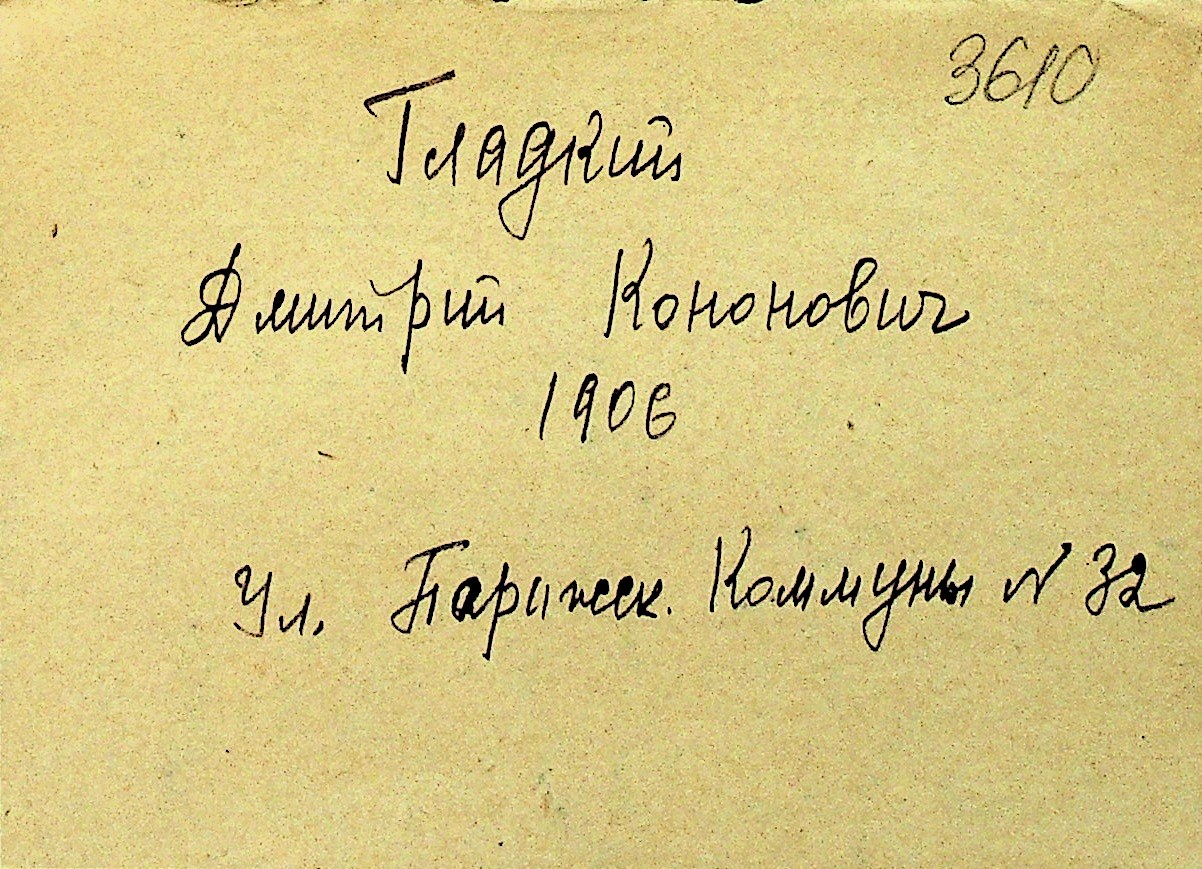 3610
Гладкий
Дмитрий Кононович
1906
Ул. Парижск. Коммуны N 32